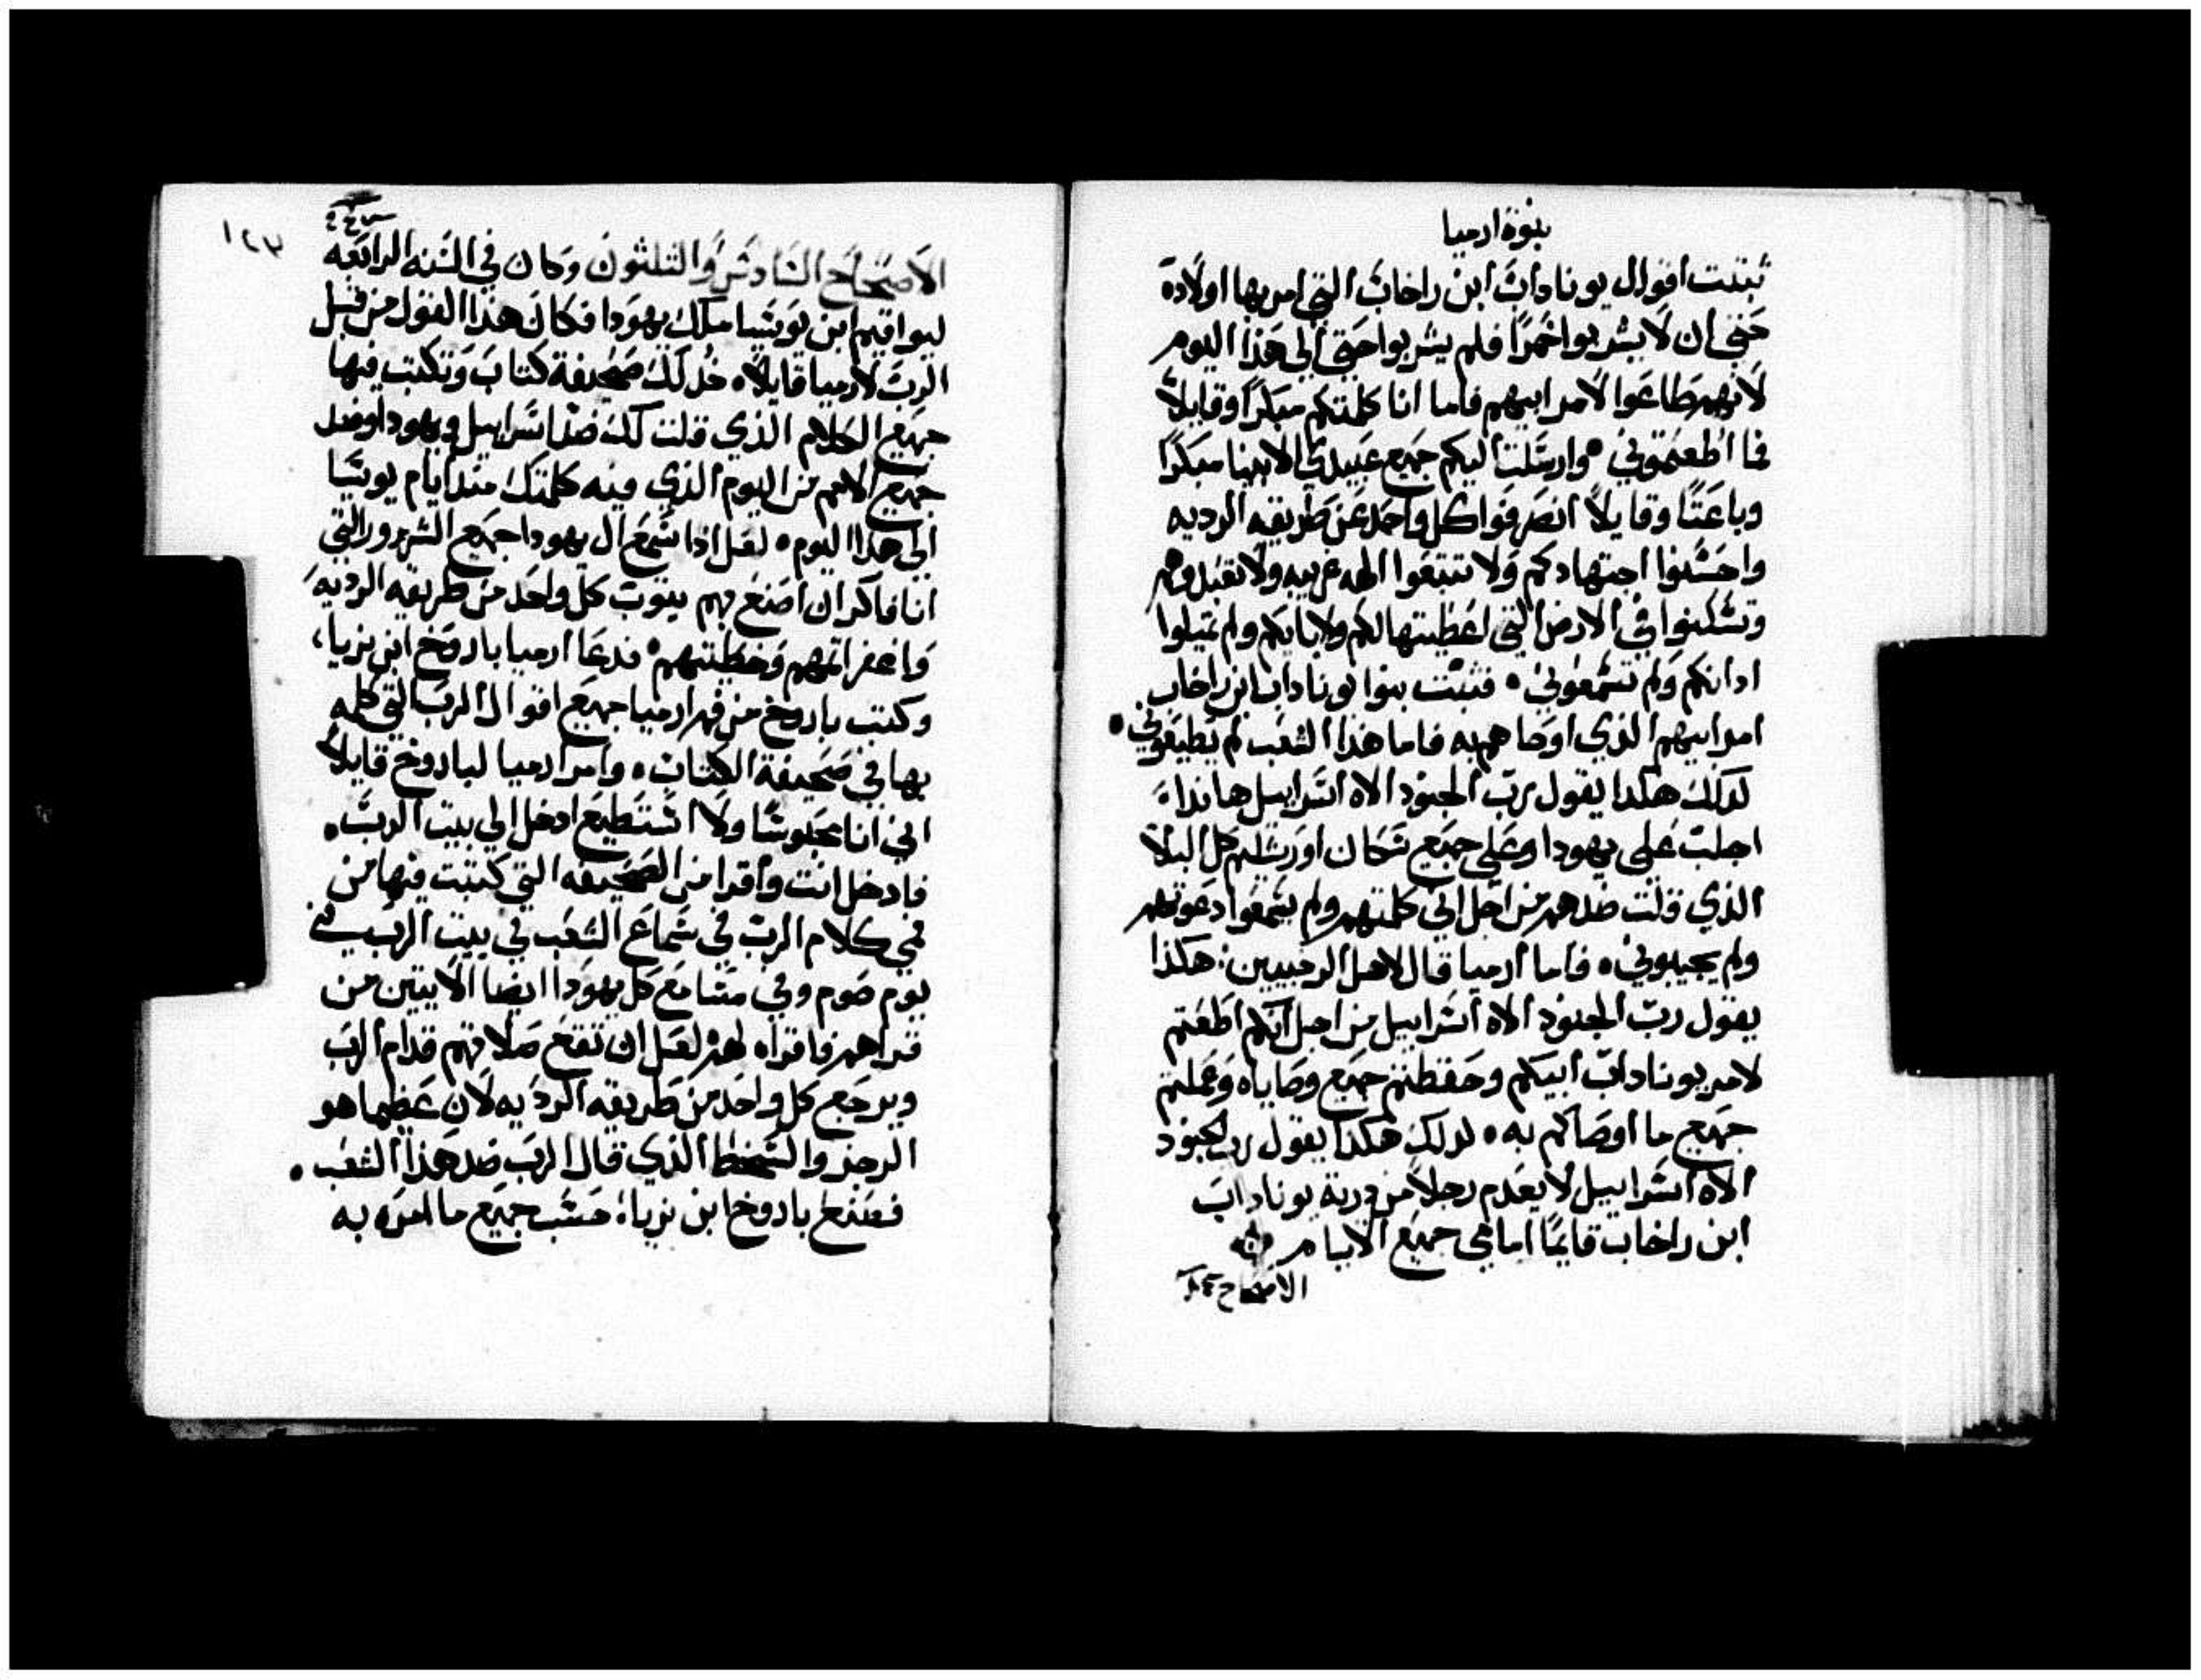 نبوة ارميا
ثبتت اقوال يوناداب ابن راخاب التي امر بها اولاده
حتي ان لا يشربوا خمرًا فلم يشربوا حتي الي هذا اليوم
لانهم طاعوا لامر ابيهم فاما انا كلمتكم مبكرًا وقايلًا
فما اطعتموني • وارسلت اليكم جميع عبيدي الانبيا مبكرًا
وباعتًا وقايلًا انصرفوا كل واحد عن طريقه الرديه
واحسنوا اجتهادكم ولا تتبعوا الهه غريبه ولا تعبدوهم
وتسكنوا في الارض التي اعطيتها لكم ولابايكم ولم تميلوا
ادانكم ولم تسمعوني • فثبتت بنوا يوناداب ابن راخاب
امر ابيهم الذي اوصاهم به فاما هذا الشعب لم يطيعوني •
لدلك هكدا يقول رب الجنود الاه اسراييل هانذاء
اجلب علي يهودا وعلي جميع سكان اورشليم كل البلا
الذي قلت ضدهم من اجل اني كلمتهم ولم يسمعوا دعوتهم
ولم يجيبوني • فاما ارميا قال لاهل الرخبيين: هكذا
يقول رب الجنود الاه اسراييل من اجل انكم اطعتم
لامر يوناداب ابيكم وحفظتم جميع وصاياه وعملتم
جميع ما اوصاكم به • لدلك هكدا يقول رب الجنود
الاه اسراييل لا يعدم رجلًا من درية يوناداب
ابن راخاب قايمًا امامي جميع الايام
الاصحاح
١٢٣
الاصحاح السادس والتلثون وكان في السنه الرابعه
ليواقيم ابن يوشيا ملك يهودا فكان هذا القول من قبل
الرب لارميا قايلًا • خد لك صحيفة كتاب وتكتب فيها
جميع الكلام الذي قلت لك ضد اسراييل ويهودا وضد
جميع الامم من اليوم الذي فيه كلمتك مند ايام يوشيا
الي هدا اليوم • لعل ادا سمع ال يهودا جميع الشرور التي
انا فاكر ان اصنع بهم يتوب كل واحد من طريقه الرديه
واغفر اتمهم وخطيتهم • فدعا ارميا باروخ ابن نريا،
وكتب باروخ من فم ارميا جميع اقوال الرب التي كلمه
بها في صحيفة الكتاب • وامر ارميا لباروخ قايلًا
اني انا محبوسًا ولا استطيع ادخل الي بيت الرب •
فادخل انت واقرا من الصحيفه التي كتبت فيها من
فمي كلام الرب في سماع الشعب في بيت الرب في
يوم صوم وفي مسامع كل يهودا ايضا الاتيين من
قراهم فاقراه لهم لعل ان تقع صلاتهم قدام الرب
ويرجع كل واحد من طريقه الرديه لان عظيما هو
الرجز والسخط الذي قال الرب ضد هذا الشعب •
فصنع باروخ ابن نريا؛ حسب جميع ما امره به